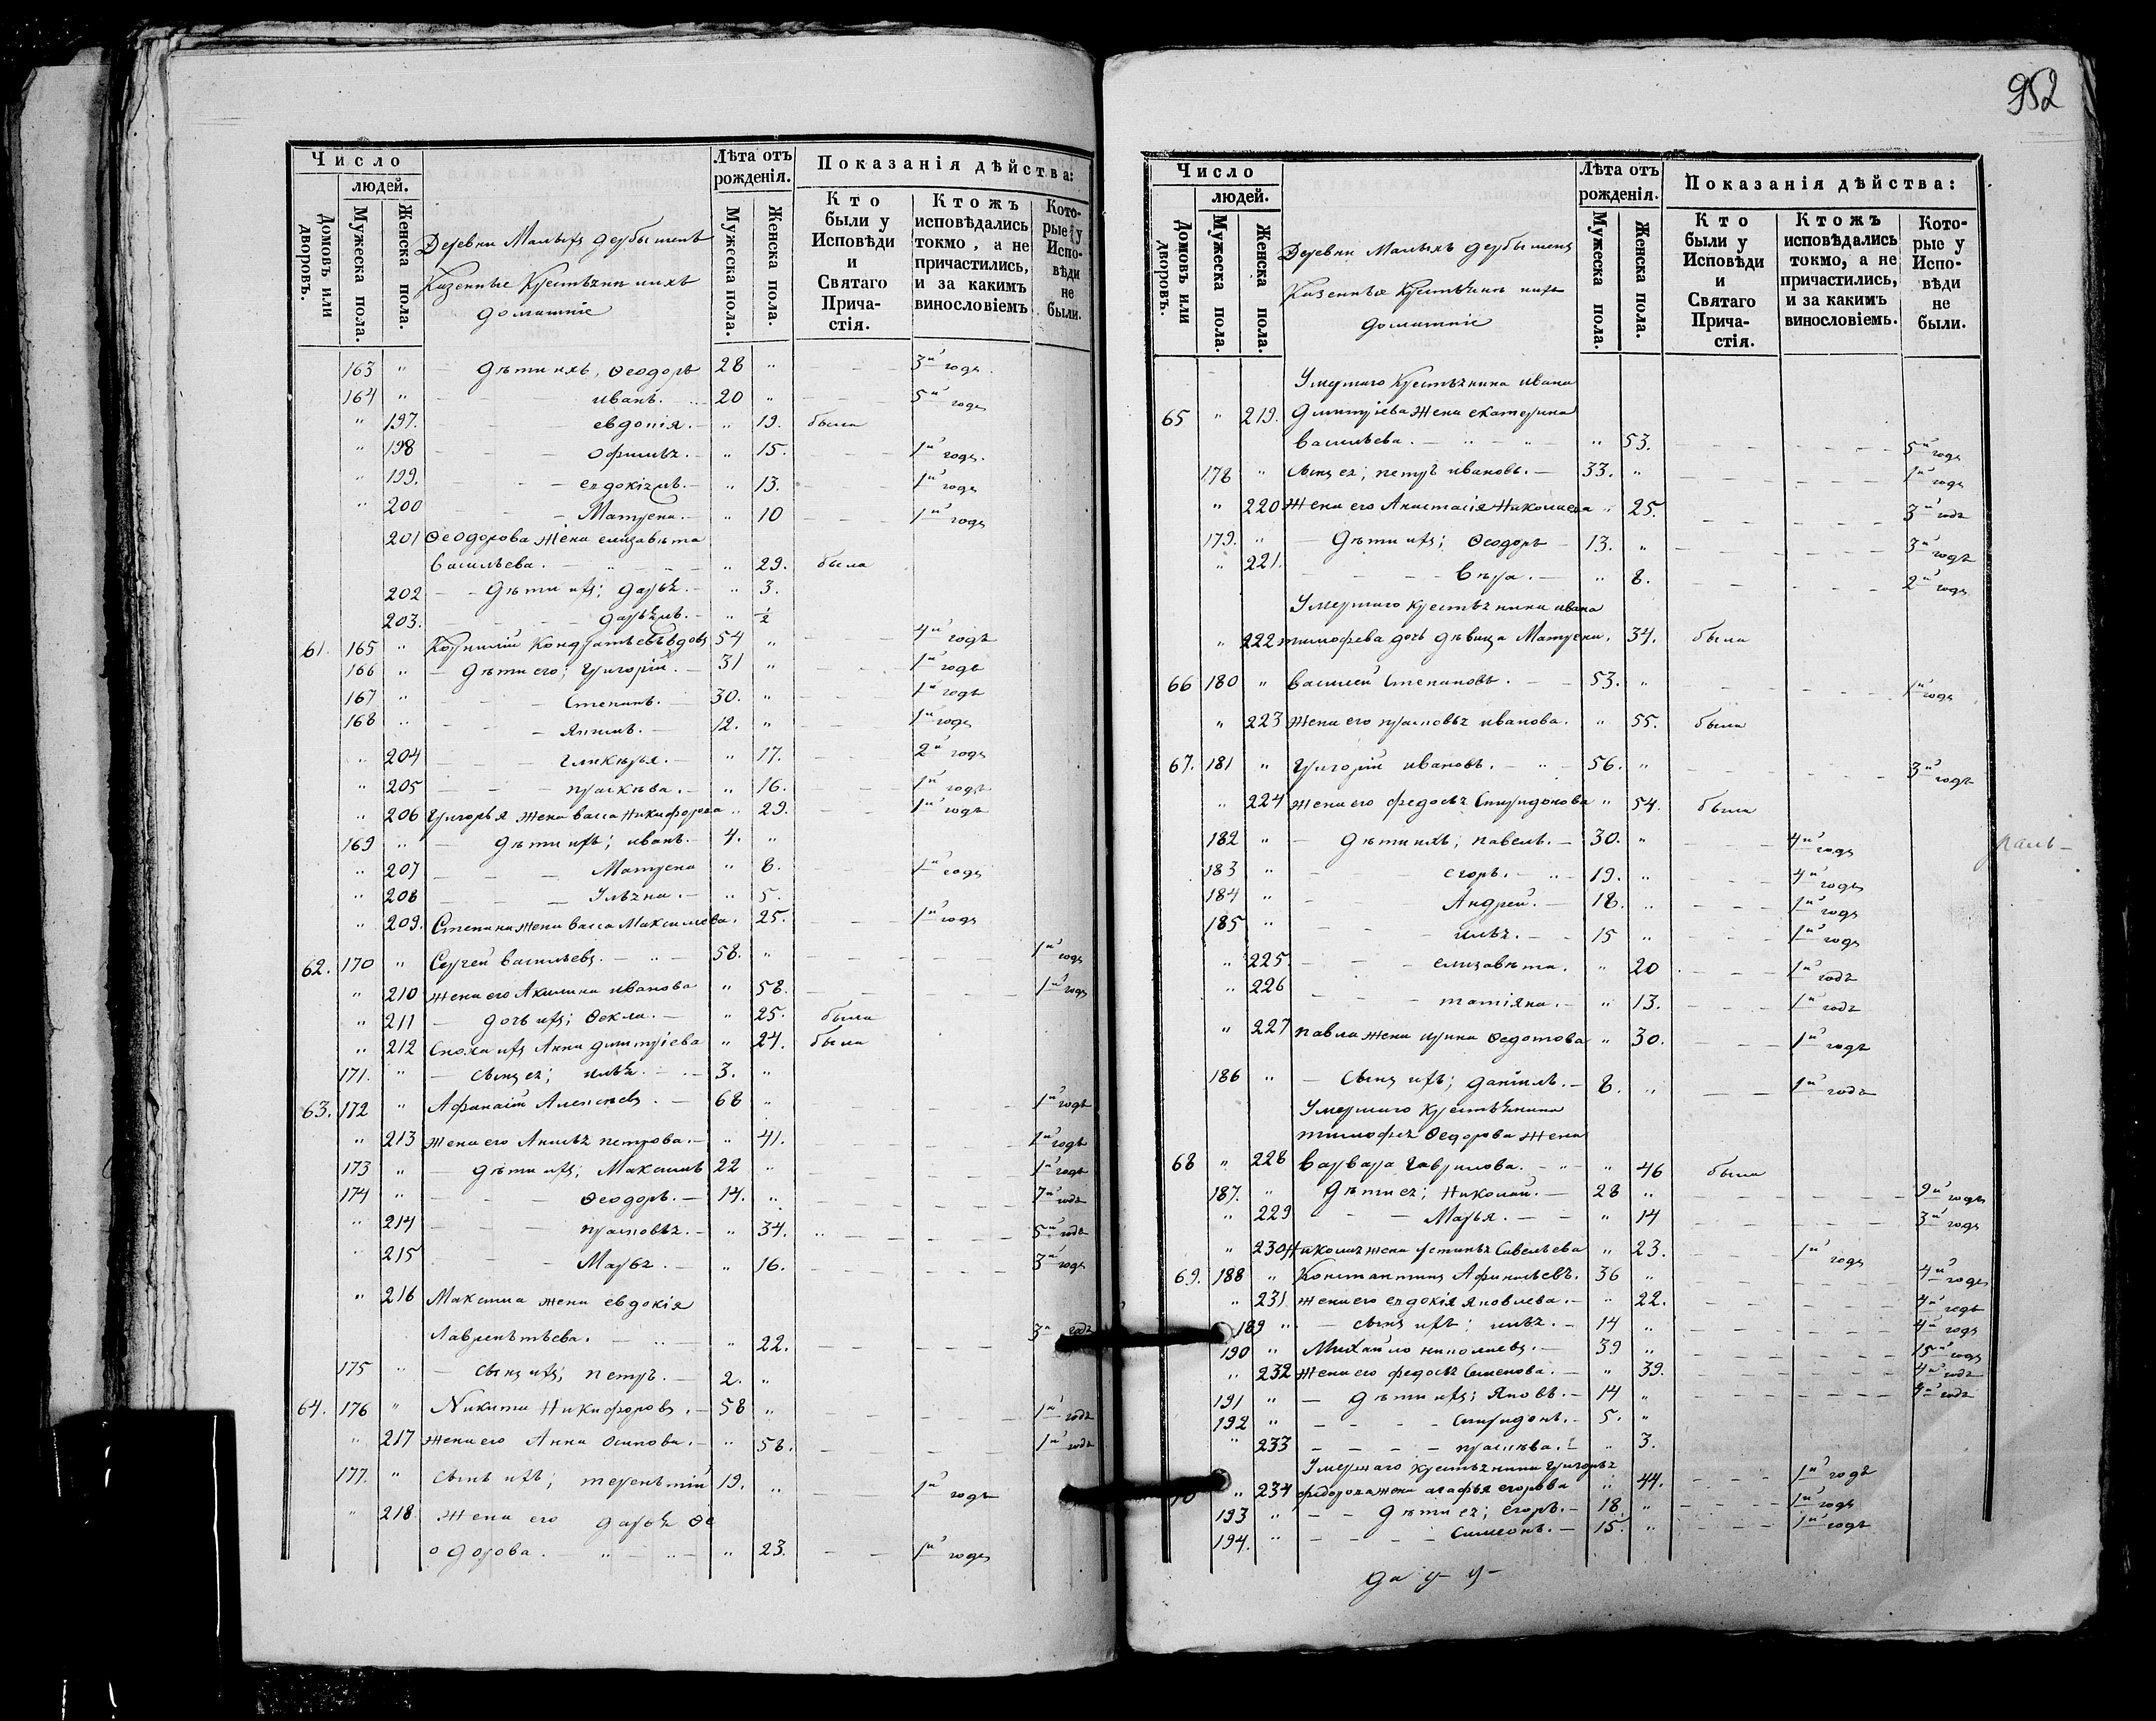 952
Число
людей.
Домовъ или дворовъ.
Мужеска пола.
Женска пола.
Деревни Малыхъ Дербышевъ
Казенные Крестьяне ихъ
домашние
Лѣта отъ рожденія.
Мужеска пола.
Женска пола.
Показанія дѣйства:
Кто были у Исповѣди и Святаго Прича-стія.
Ктожъ исповѣдались токмо, а не причастились, и за какимъ винословіемъ
Кото-рые у Испо-вѣди не были.
163 " — Дѣти ихъ, Ѳеодоръ 28 " 3й годъ
164 " иванъ. 20 " 5й годъ
" 197. евдокія. " 19. была
" 198 " 15. 1й годъ.
" 199. " 13. 1й годъ
" 200 Матрена. " 10 1й годъ
201 Ѳеодорова жена елизавѣта
васильева. " 29. была
202 Дѣти ихъ; дарья. " 3.
203. " ½
61. 165 " Корнилій Кондратьевъ вдовъ 54 " 4й годъ
166 " — Дѣти его; Григорій. 31 " 1й годъ
167 " Степанъ. 30. " 1й годъ
168 " 12. " 1й годъ
" 204 Гликерья. " 17. 2й годъ
" 205 " 16. 1й годъ
" 206 Григорья жена васса Никифорова " 29. 1й годъ
169 " — Дѣти ихъ; иванъ. 4. "
" 207 Матрена " 8. 1й годъ
" 208 Ульяна. " 5.
" 209. Степана жена васса Максимова. 25. 1й годъ
62. 170 " Сергей васильевъ. 58. " 1й годъ
" 210 жена его Акилина иванова " 58. 1й годъ
" 211 — дочь ихъ; Ѳекла. " 25. была
" 212 Сноха ихъ Анна Димитріева " 24. была
171. " — сынъ ея; илья. 3. "
63. 172 " Афанасій Алексѣевъ. 68 " 1й годъ
" 213 жена его петрова. " 41. 1й годъ
173 " — Дѣти ихъ; Максимъ 22 " 1й годъ
174 " Ѳеодоръ. 14. " 7й годъ
" 214 прасковья. " 34. 5й годъ
" 215 Марья. " 16. 3й годъ
" 216 Максима жена евдокія
Лаврентьева. " 22. 3й годъ
175 " — сынъ ихъ; петръ. 2. "
64. 176 " Никита Никифоровъ. 58 " 1й годъ
" 217 жена его Анна Осипова. " 58. 1й годъ
177. " сынъ ихъ; терентій 19. " 1й годъ
" 218 жена его дарья Ѳе
одорова. " 23. 1й годъ
Число
людей.
Домовъ или дворовъ.
Мужеска пола.
Женска пола.
Деревни Малыхъ Дербышевъ
Казенные Крестьяне ихъ
домашние
Лѣта отъ рожденія.
Мужеска пола.
Женска пола.
Показанія дѣйства:
Кто были у Исповѣди и Святаго Прича-стія.
Ктожъ исповѣдались токмо, а не причастились, и за какимъ винословіемъ.
Кото-рые у Испо-вѣди не были.
Умершаго Крестьянина ивана
65 " 219. Димитріева жена екатерина
васильева. " 53. 5й годъ
178 " сынъ ея; петръ ивановъ. 33. " 1й годъ
" 220 жена его Анастасія Николаева " 25. 3й годъ
179. " — Дѣти ихъ; Ѳеодоръ 13. " 3й годъ
" 221. вѣра. " 8. 2й годъ
Умершаго крестьянина ивана
" 222 тимофеева дочь дѣвица Матрена. 34. была
66 180 " василей Степановъ. 53. " 1й годъ
" 223 жена его прасковья иванова. " 55. была
67. 181 " Григорій ивановъ. 56. " 3й годъ
" 224 жена его федосья Спиридонова " 54. была
182 " — Дѣти ихъ; павелъ. 30. " 4й годъ
183 " егоръ. 19. " 4й годъ
184 " Андрей. 18. " 1й годъ
185 " илья. 15 " 1й годъ
" 225. елизавѣта. " 20 1й годъ
" 226 татіяна. " 13. 1й годъ
" 227 павла жена ирина Ѳедотова " 30. 1й годъ
186 " — сынъ ихъ; даніилъ. 8. " 1й годъ
Умершаго крестьянина
тимофея Ѳедорова жена
68 " 228 варвара Гаврилова. " 46 была
187. " Дѣти ея; Николай. 28 " 9й годъ
" 229 Марья. " 14 3й годъ
" 230 Николая жена устинья Савельева " 23. 1й годъ
69. 188 " Константинъ Афанасьевъ. 36 " 4й годъ
" 231. жена его евдокія яковлева. " 22. 4й годъ
189 " — сынъ ихъ; илья. 14 " 4й годъ
190 " Михайло николаевъ. 39 " 15й годъ
" 232 жена его федосья Семенова. " 39. 4й годъ
191 " — Дѣти ихъ; Яковъ. 14 " 4й годъ
192 " Спиридонъ. 5. "
" 233 " 3.
Умершаго крестьянина григорья
70 " 234 федорова жена агафья егорова " 44. 1й годъ
193 " — Дѣти ея; егоръ. 18. " 1й годъ
194. " Симеонъ. 15. " 1й годъ